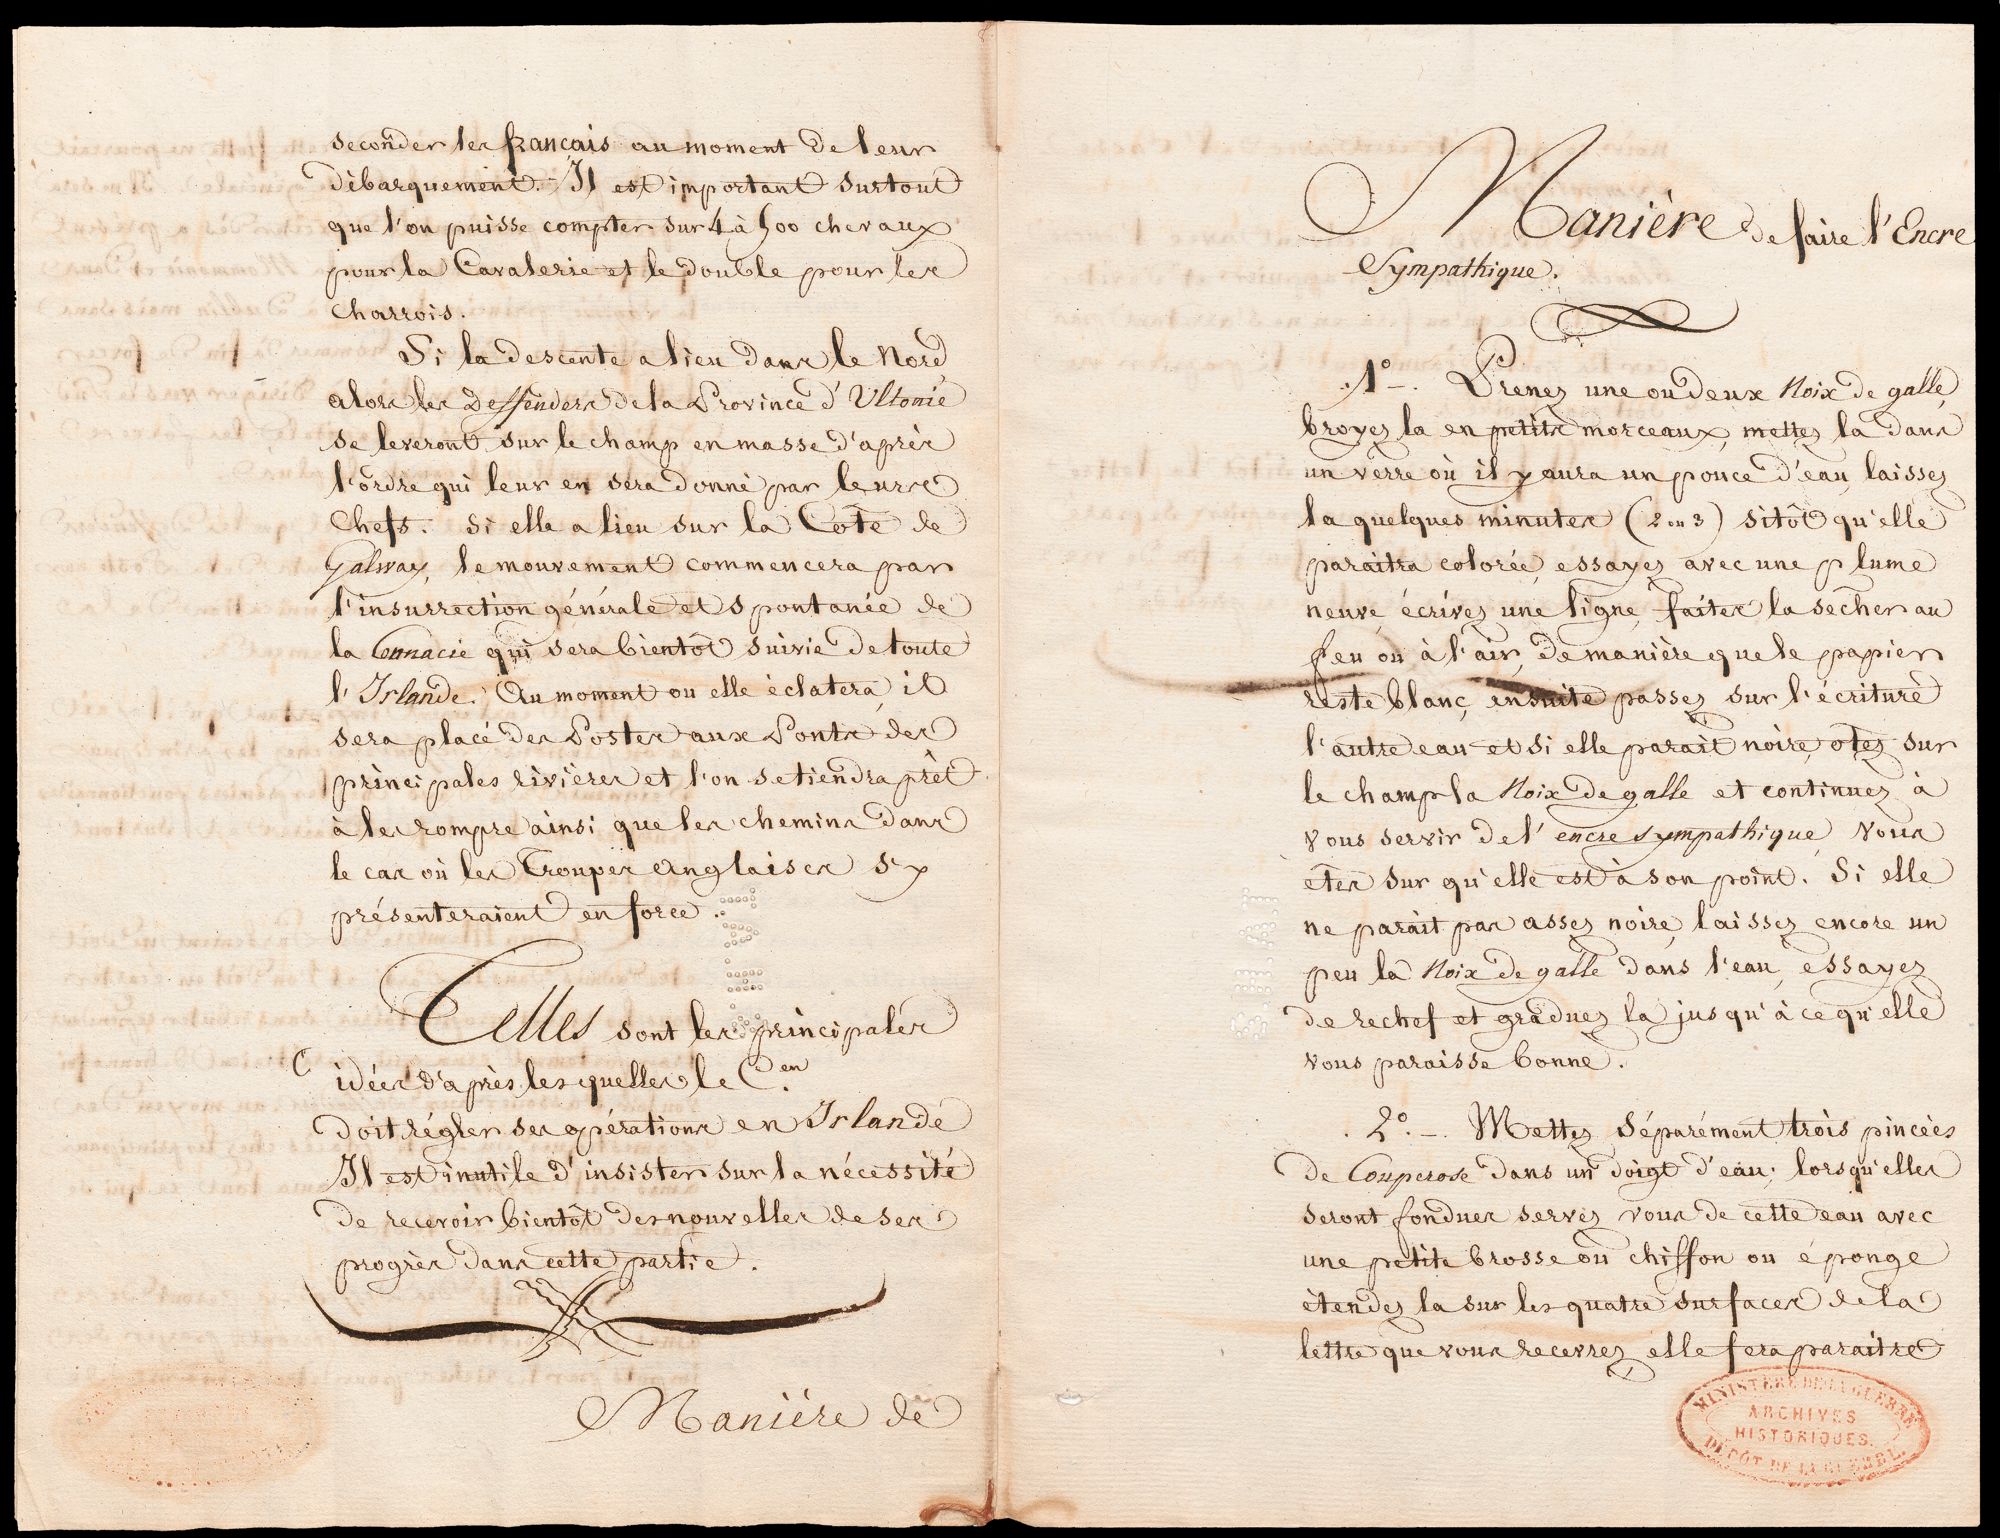 seconder les français au moment de leur
débarquement. Il est important surtout
que l'on puisse compter sur 4 à 500 chevaux
pour la Cavalerie et le double pour les
Charrois.
Si la descente a lieu dans le Nord,
alors les Deffenders de la Province d'Ultonie
se leveront sur le champ en masse d'après
l'ordre qui leur en sera donné par leurs
Chefs. Si elle a lieu sur la Côte de
Galway, le mouvement commencera par
l'insurrection générale et spontanée de
la Connacie qui sera bientôt suivie de toute
l'Irlande. Au moment ou elle éclatera, il
sera placé des Postes aux Ponts des
principales rivières et l'on se tiendra prêt
à les rompre ainsi que les chemins dans
le cas où les Troupes Anglaises s'y
présenteraient en force.
Telles sont les principales
idées d'après lesquelles le C.en
doit régler ses opérations en Irlande
Il est inutile d'insister sur la nécessité
de recevoir bientôt des nouvelles de ses
progrès dans cette partie.
Manière de
Manière de faire l'Encre
Sympathique.
1º. Prenez une ou deux Noix de galle,
broyez la en petits morceaux, mettez la dans
un verre où il y aura un pouce d'eau, laissez
la quelques minutes (2 ou 3) sitôt qu'elle
paraitra colorée, essayez avec une plume
neuve, écrivez une ligne, faites la sécher au
feu ou à l'air, de manière que le papier
reste blanc, ensuite passez sur l'écriture
l'autre eau et si elle parait noire, otez sur
le champ la Noix de galle et continuez à
vous servir de l'encre sympathique, Vous
êtes sur qu'elle est à son point. Si elle
ne parait pas assez noire, laissez encore un
peu la Noix de galle dans l'eau, essayez
de rechef et graduez la jusqu'à ce qu'elle
vous paraisse bonne.
2º. Mettez séparément trois pincées
de Couperose dans un doigt d'eau; lorsqu'elles
seront fondues servez vous de cette eau avec
une petite brosse ou chiffon ou éponge
étendez la sur les quatre surfaces de la
lettre que vous recevrez, elle fera paraitre
MINISTÈRE DE LA GUERRE
ARCHIVES
HISTORIQUES.
DÉPÔT DE LA GUERRE.